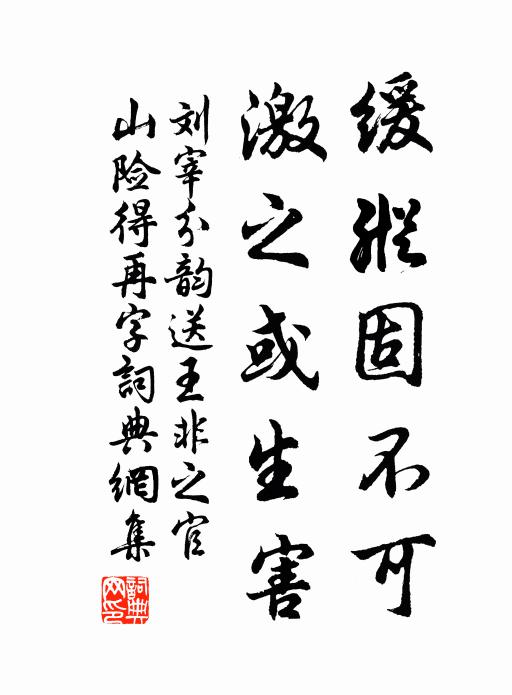 缓纵固不可
激之或生害
刘宰分韵送王非之官
山险得再字詞典網集
詞典網印